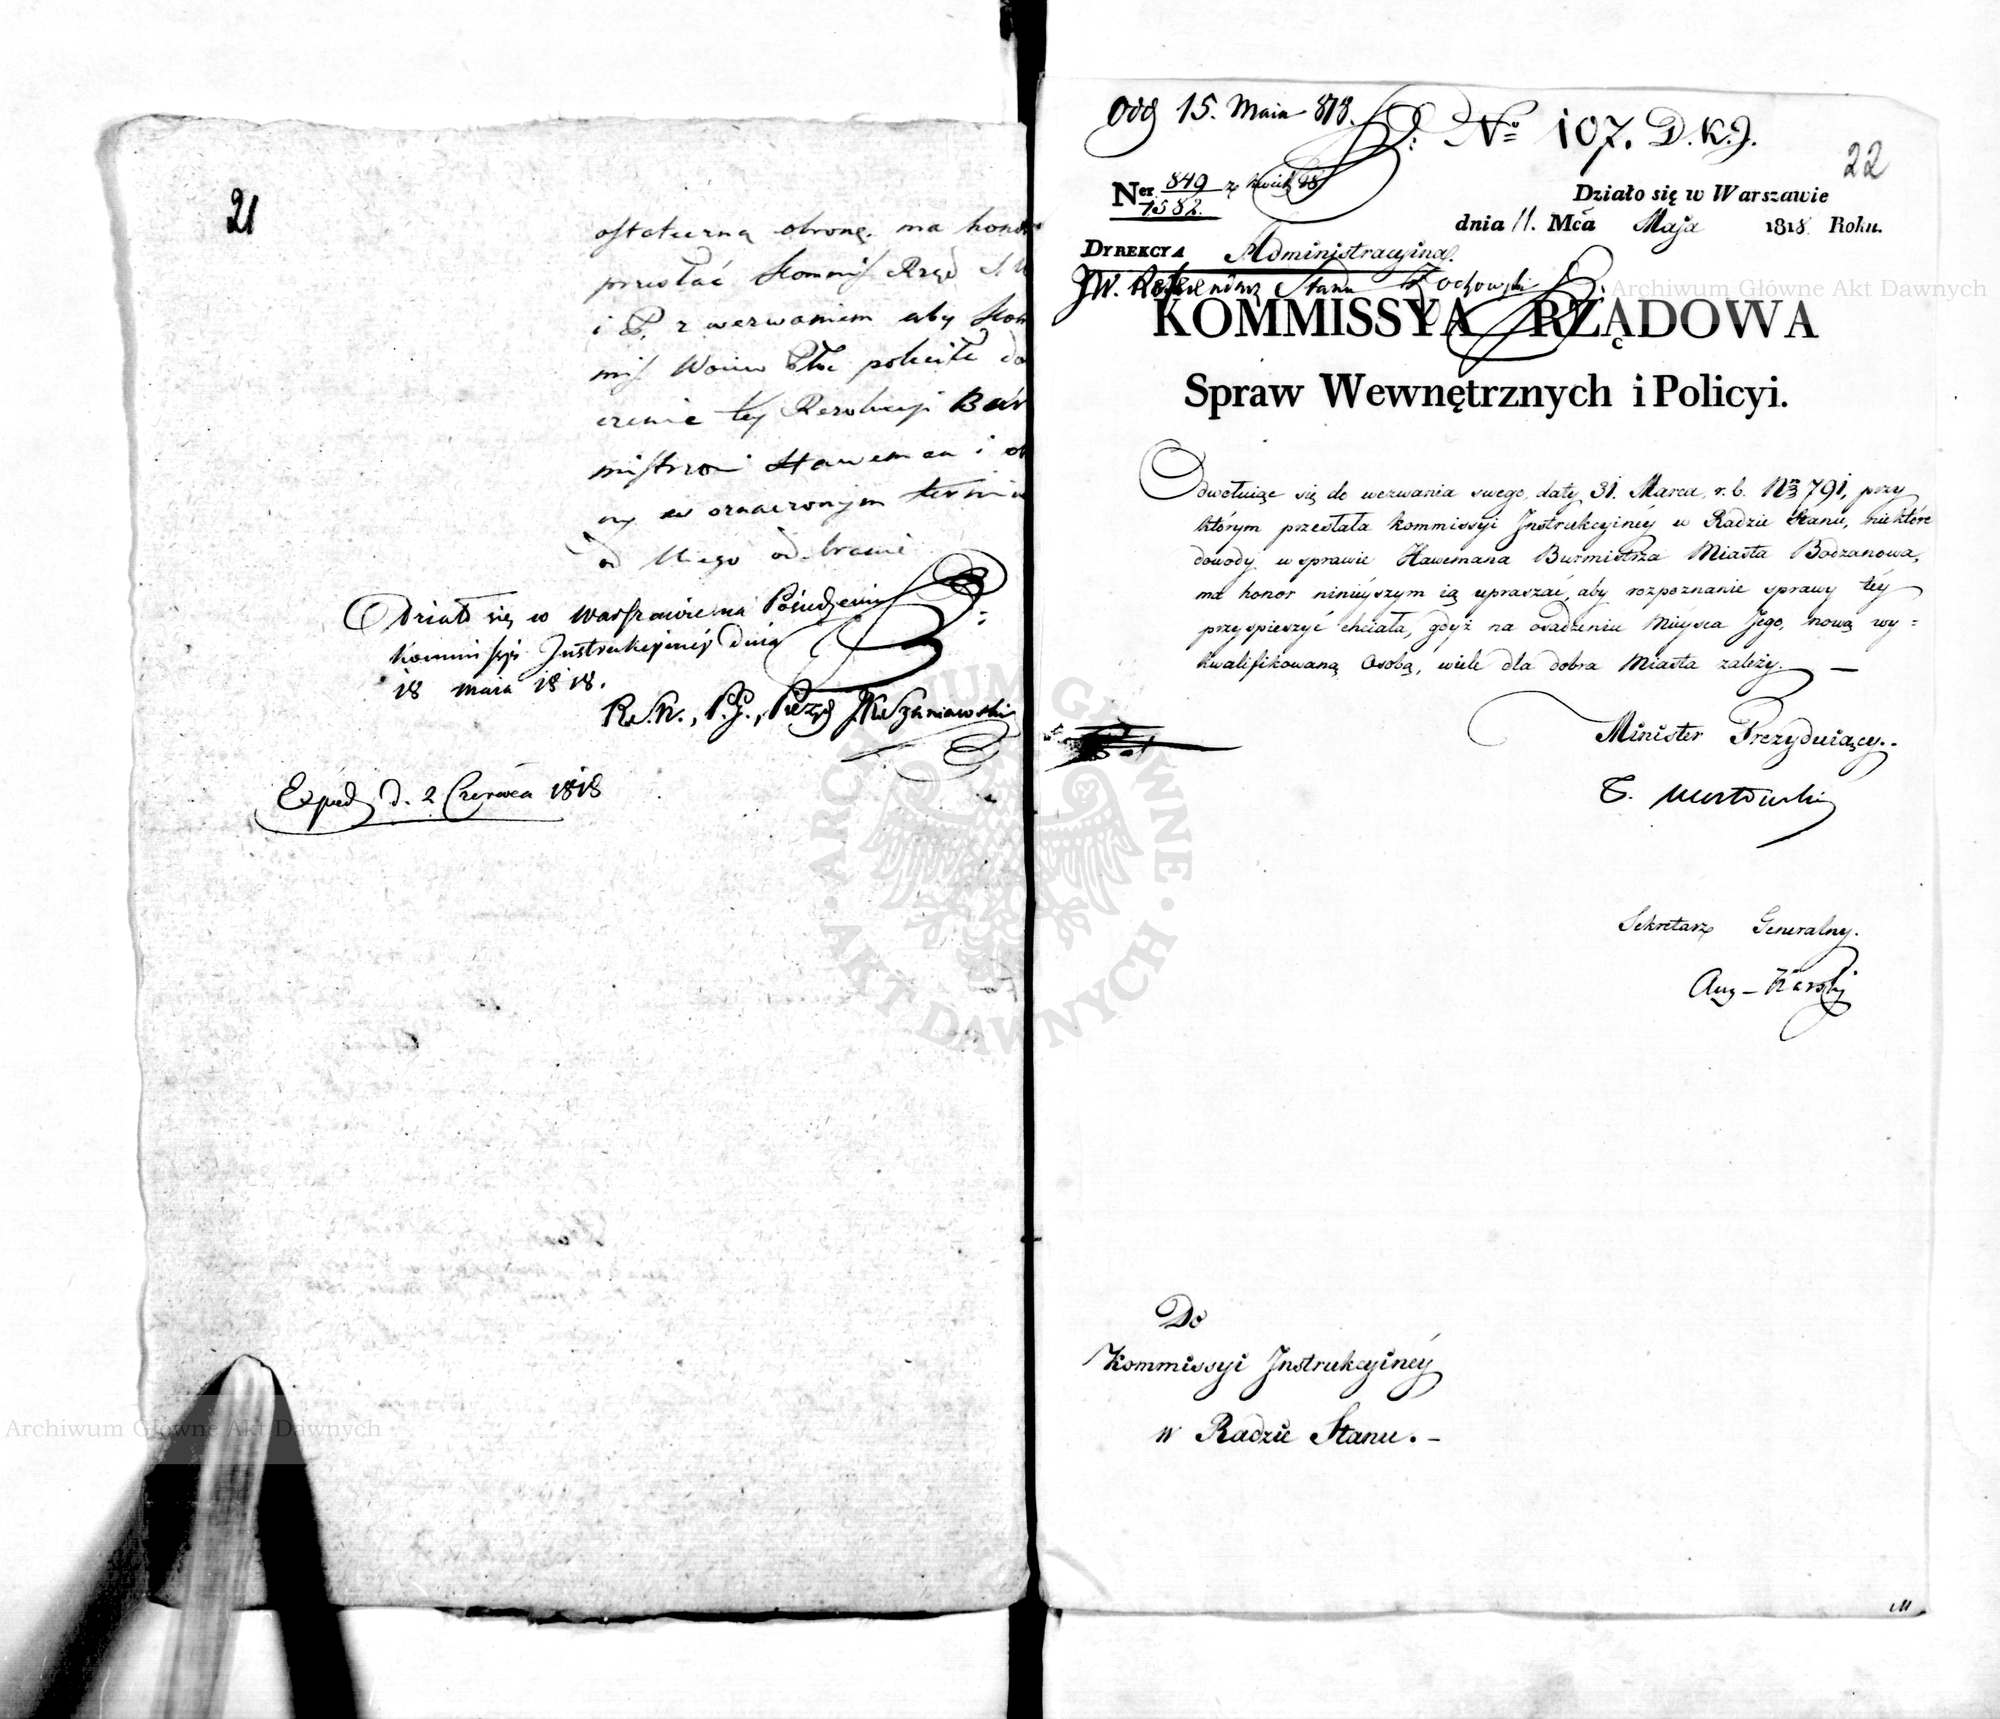 21
ostateczną obronę, ma honor
przesłać Kommis Rząd S. W
i P. z wezwaniem aby Kom
mis Woiew Płoc poleciła do
czenie tey Rezolucyi Bur
mistrzowi Haweman i
w oznaczonym termin
od niego odebranie
Działo się w Warszawie na Posiedzeniu
Kommissyi Instrukcyiney dnia
18 maia 1818.
R. S., P. J., Prezyd J. K. Szaniawski
Exped d. 2 Czerwca 1818
Odd 15. Maia 818.
No 107. D.K.J.
22
Ner 849/1582. z kwiet 18
Działo się w Warszawie
dnia 11. Mca Maja 1818 Roku.
DYREKCYA Administracyina.
JW. Referendarz Stanu Żochowski
KOMMISSYA RZĄDOWA
Spraw Wewnętrznych i Policyi.
Odwołuiąc się do wezwania swego, daty 31. Marca, r. b. Nro 791, przy
którym przesłała Kommissyi Instrukcyinéy w Radzie Stanu, niektóre
dowody w sprawie Hawemana Burmistrza Miasta Bodzanowa,
ma honor ninieyszym ią upraszać, aby rozpoznanie sprawy téy
przyspieszyć chciała, gdyż na osadzeniu Mieysca Jego, nową wy=
kwalifikowaną Osobą, wiele dla dobra Miasta zależy. —
Minister Prezyduiący.
T. Mostowski
Sekretarz Generalny.
Aug. Karski
Do
Kommissyi Instrukcyinéy
w Radzie Stanu. –
Archiwum Główne Akt Dawnych
ARCHIWUM GŁÓWNE · AKT DAWNYCH ·
Archiwum Główne Akt Dawnych